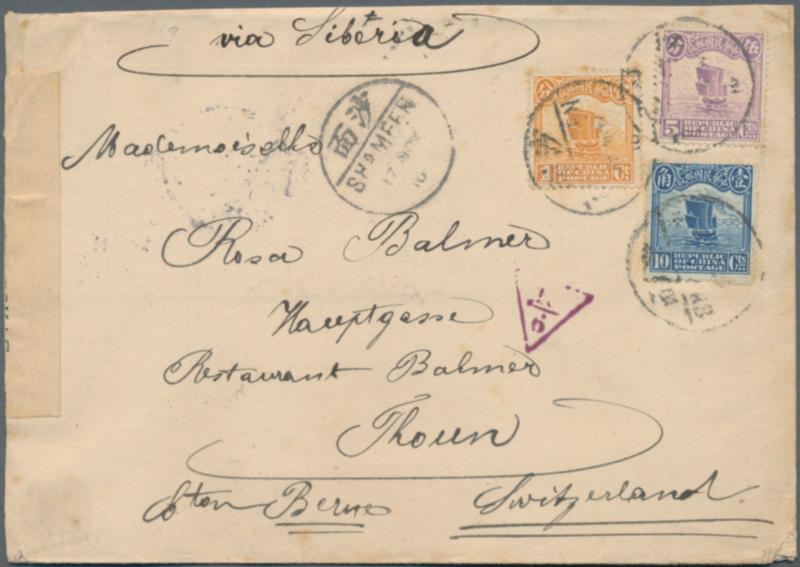 via Sibéria
Mademoiselle
Rosa Balmer
Hauptgasse
Restaurant Balmer
Thoun
Cton Berne Switzerland
沙面
SHAMEEN
17 NOV
16
中華民國郵政
REPUBLIC
OF CHINA
POSTAGE
1
中華民國郵政
5 REPUBLIC Cts
OF CHINA
POSTAGE
壹 中華民國郵政 角
10 REPUBLIC Cts
OF CHINA
POSTAGE